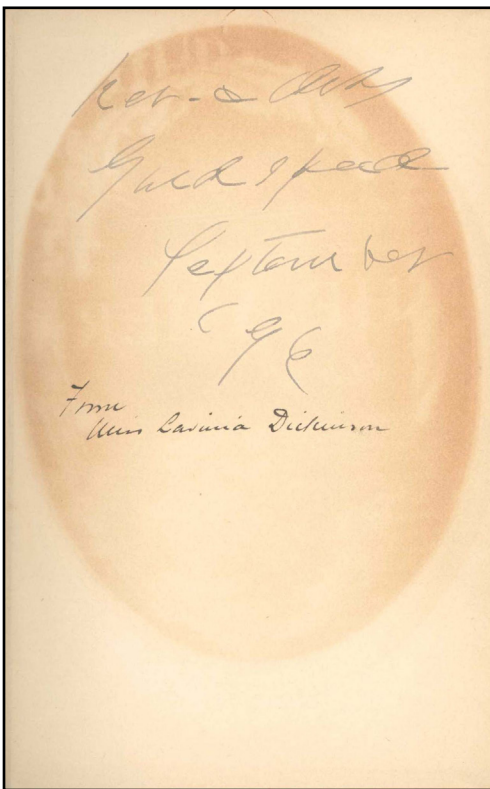 Rev. & Mrs
Goodspeed
September
'96
From
Miss Lavinia Dickinson